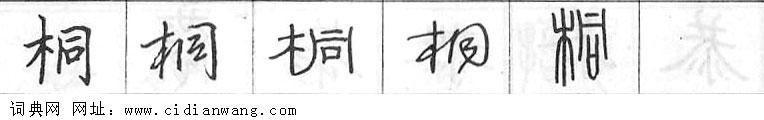 桐 桐 桐 桐 桐
词典网 网址：www.cidianwang.com